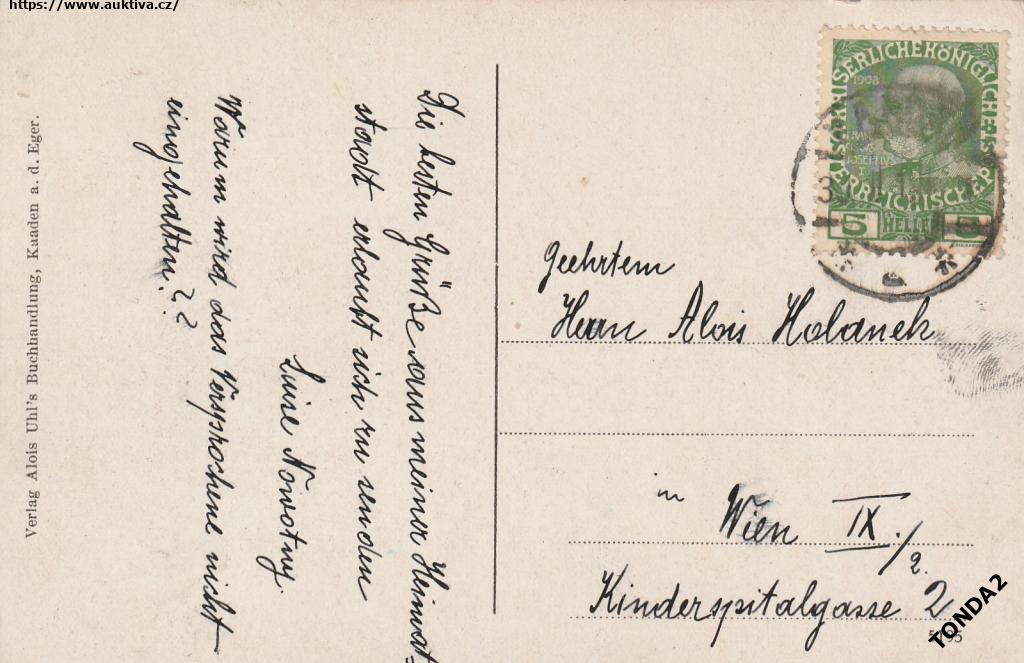 https://www.auktiva.cz/
Die besten Grüße aus meiner Heimat-
stadt erlaubt sich zu senden
Luise Nowotny.
Warum wird das Versprochene nicht
eingehalten??
Verlag Alois Uhl's Buchhandlung, Kaaden a. d. Eger.
KAISERLICHE KÖNIGLICHE
ÖSTERREICHISCHE POST
1908
FRANCISCUS
JOSEPHUS I
5 HELLER 5
Geehrtem
Herrn Alois Holanek
in Wien IX./2.
Kinderspitalgasse 2
TONDA2